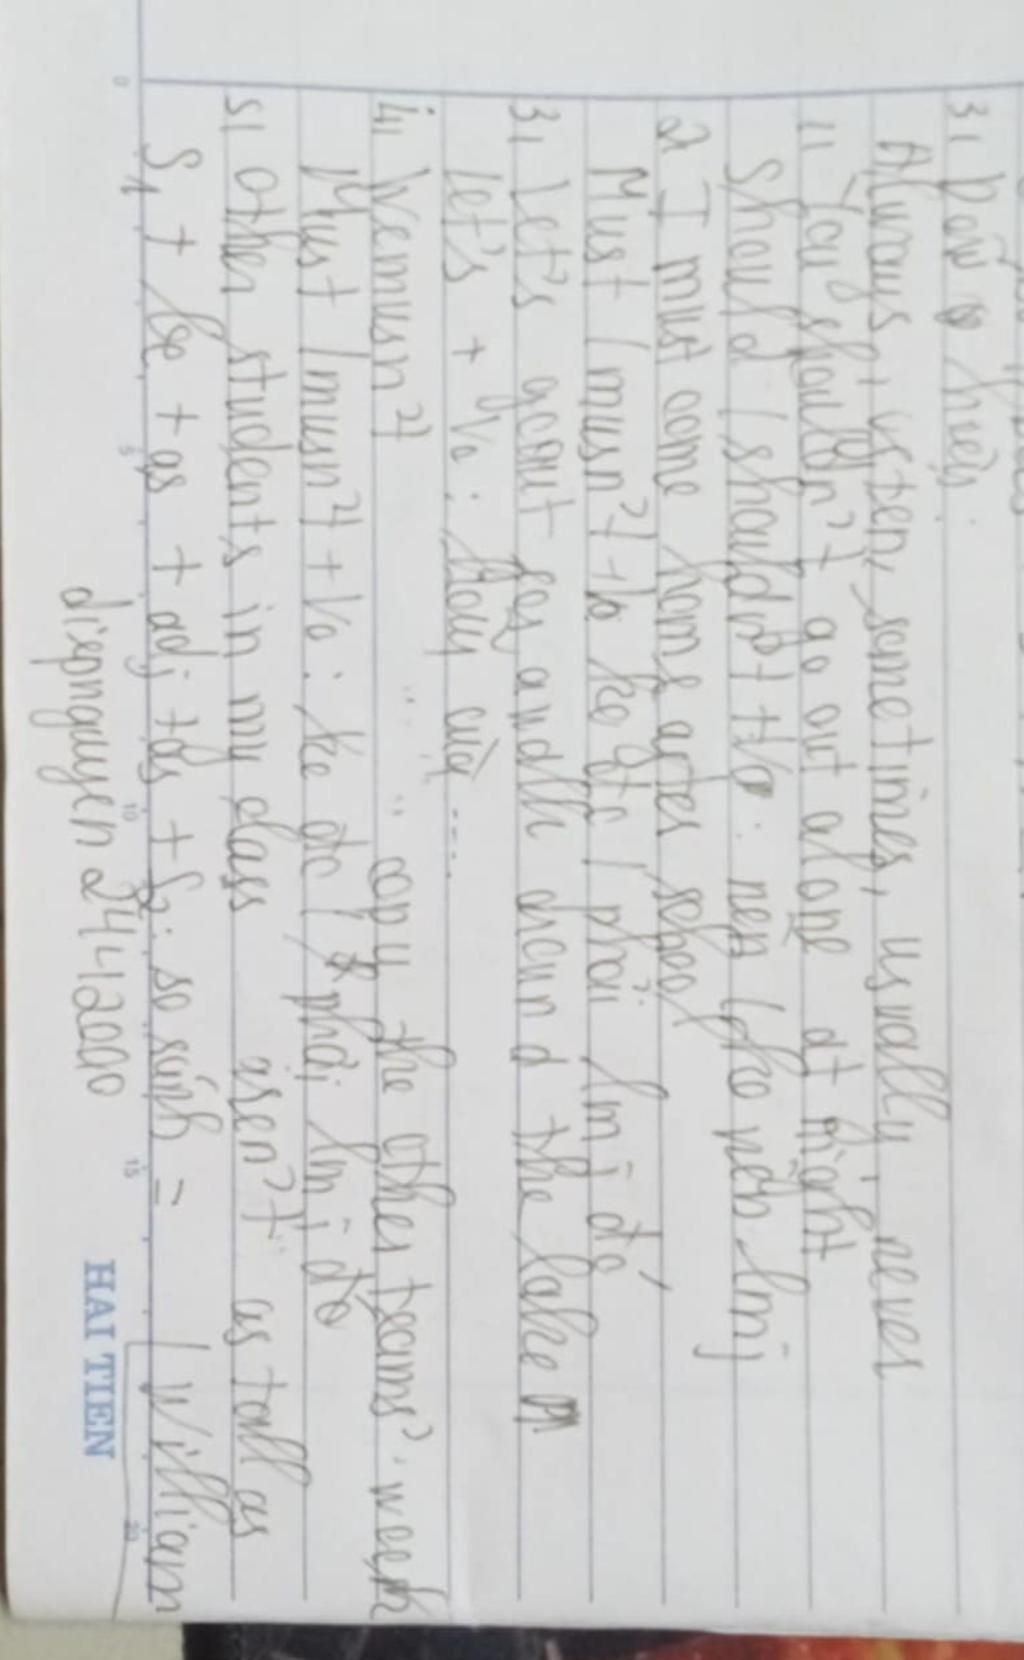 3,
Always, usten, sometimes, usually, never
1, You shouldn't go out alone at night
should / shouldn't + Vo: nên / ko nên lmj
2, I must come home after school
Must / musn't + Vo ko đc / phải lm j đó
3, Let's go out for a walk around the lake
Let's + Vo:
4, We musn't copy the other teams' work
Must / musn't + Vo: ko đc / phải lm j đó
5, Other students in my class aren't as tall as
S1 + be + as + adj + as + S2: so sánh = / William
diepnguyen 2441200
HAI TIEN
0 5 10 15 20